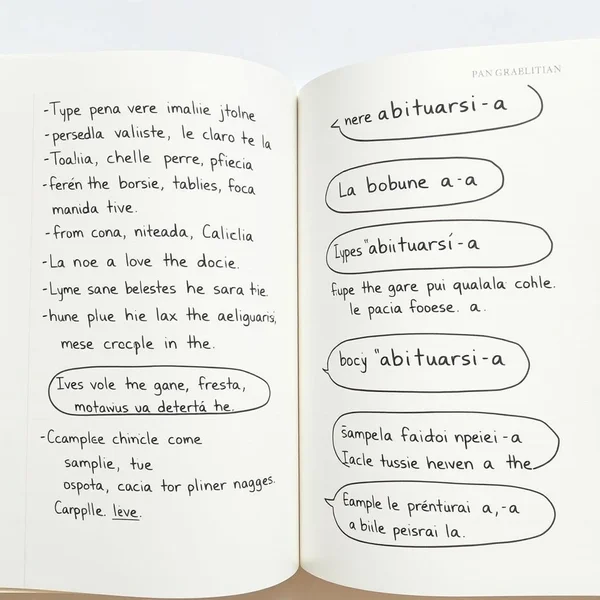 -Type pena vere imaliie jtolne
-persedla valiiste, le claro te la
-Toaliia, chelle perre, pfiecia
-ferén the borsie, tablies, foca
manida tive.
-from cona, niteada, Caliclia
-La noe a love the docie.
-Lyme sane belestes he sara tie.
-hune plue hie lax the aeliguaris,
mese crocple in the.
Ives vole the gane, fresta,
motawus va detertá he.
-Ccamplee chincle come
samplie, tue
ospota, cacia tor pliner nagges.
Carpplle. leve.
PAN GRABLITIAN
nere abituarsi-a
La bobune a-a
Iypes "abiituarsí-a
fupe the gare pui qualala cohle.
le pacia fooese. a.
bocy "abituarsi-a
sampela faidoi npeiei-a
Iacle tussie heiven a the
Eample le prénturai a,-a
a biile peisrai la.